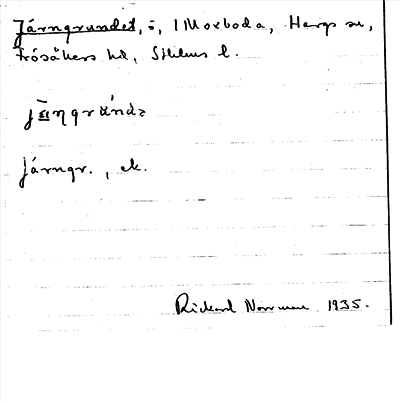 Järngrundet, ö, i Morboda, Hargs sn,
Frösåkers hd, Sthlms l.
Järngr., ek.
Rickard Norrman 1935.